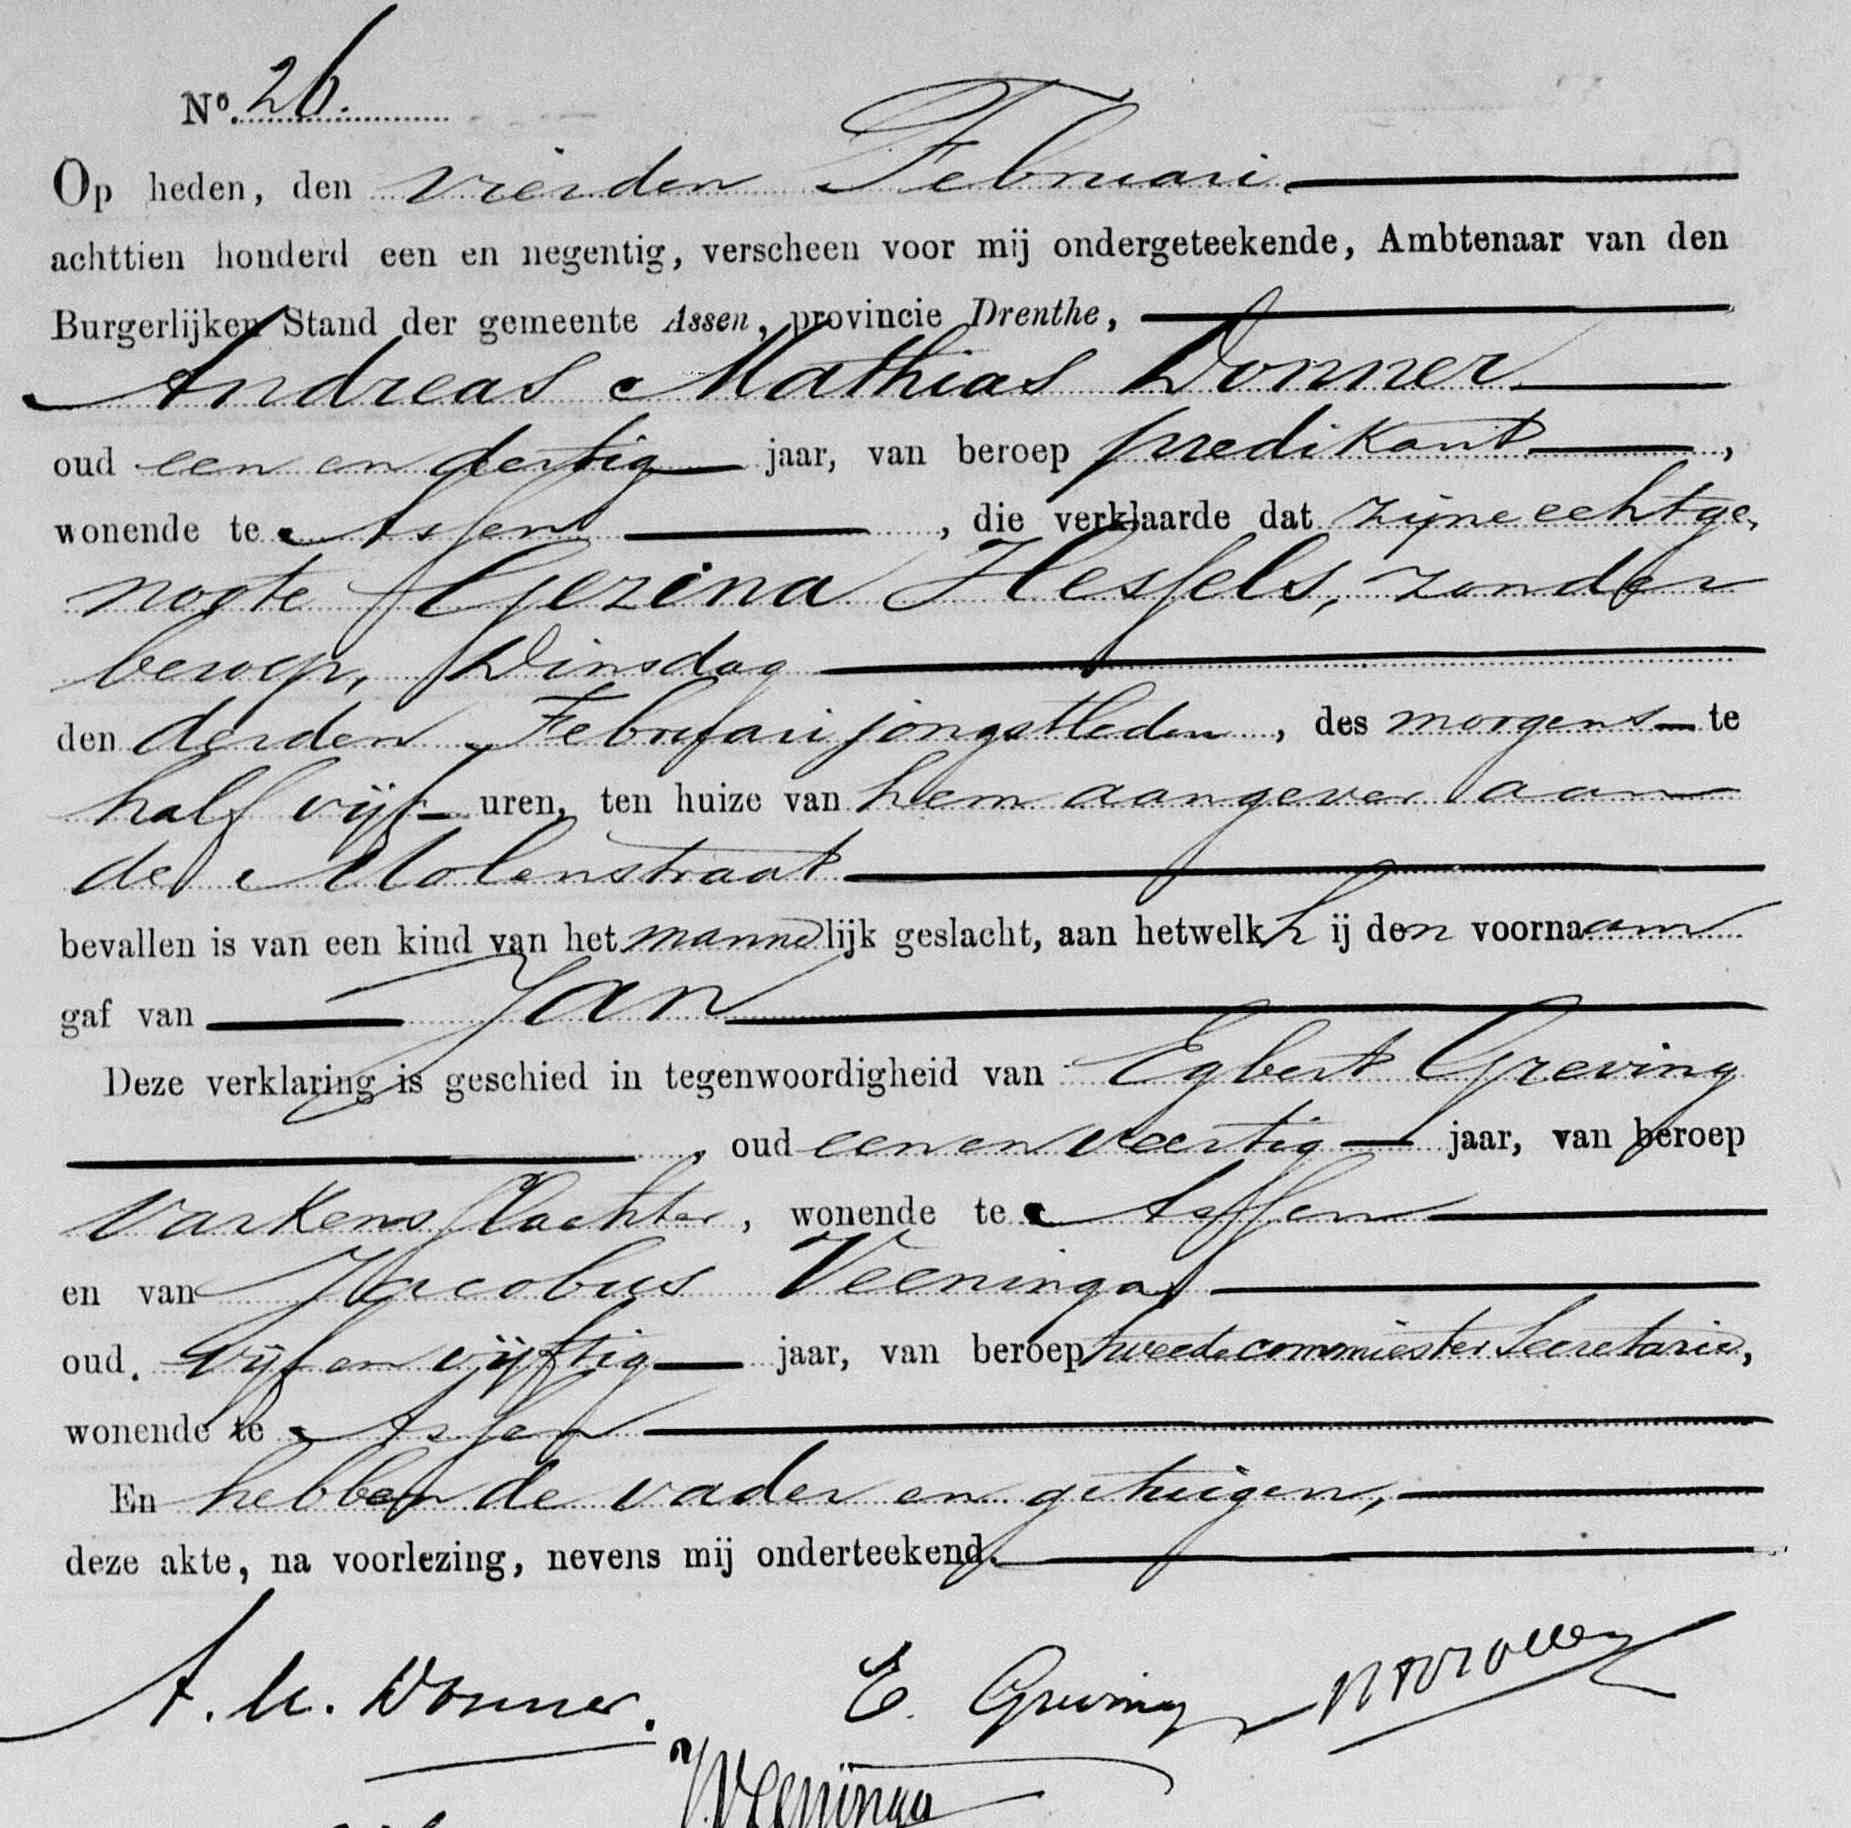 No. 26.
Op heden, den vierden Februari
achttien honderd een en negentig, verscheen voor mij ondergeteekende, Ambtenaar van den
Burgerlijken Stand der gemeente Assen, provincie Drenthe,
Andreas Mathias Donner
oud een en dertig jaar, van beroep predikant,
wonende te Assen, die verklaarde dat zijne echtge,
noote Gezina Hessels, zonder
beroep, Dinsdag
den derden Februari jongstleden, des morgens te
half vijf uren, ten huize van hem aangever aan
de Molenstraat
bevallen is van een kind van het mannelijk geslacht, aan hetwelk hij den voornaam
gaf van Jan
Deze verklaring is geschied in tegenwoordigheid van Egbert Greving
, oud een en veertig jaar, van beroep
varkensslachter, wonende te Assen
en van Jacobus Veeninga
oud vijf en vijftig jaar, van beroep tweede commies ter Secretarie,
wonende te Assen
En hebben de vader en getuigen,
deze akte, na voorlezing, nevens mij onderteekend.
A. M. Donner.
E. Greving
J. Veeninga